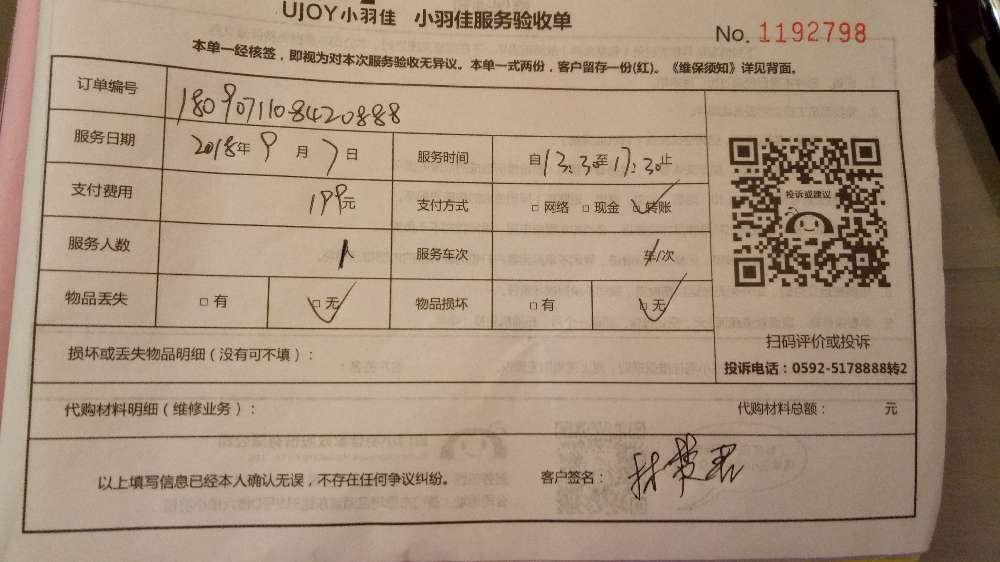 UJOY小羽佳 小羽佳服务验收单
No. 1192798
本单一经核签，即视为对本次服务验收无异议。本单一式两份，客户留存一份(红)。《维保须知》详见背面。
订单编号 1809071108420888
服务日期 2018年9月7日 服务时间 自13:30至17:30止
支付费用 199元 支付方式 □网络 □现金 □转账
服务人数 1人 服务车次 车/次
物品丢失 □有 □无 物品损坏 □有 □无
投诉或建议
扫码评价或投诉
投诉电话：0592-5178888转2
损坏或丢失物品明细（没有可不填）：
代购材料明细（维修业务）： 代购材料总额： 元
以上填写信息已经本人确认无误，不存在任何争议纠纷。 客户签名：